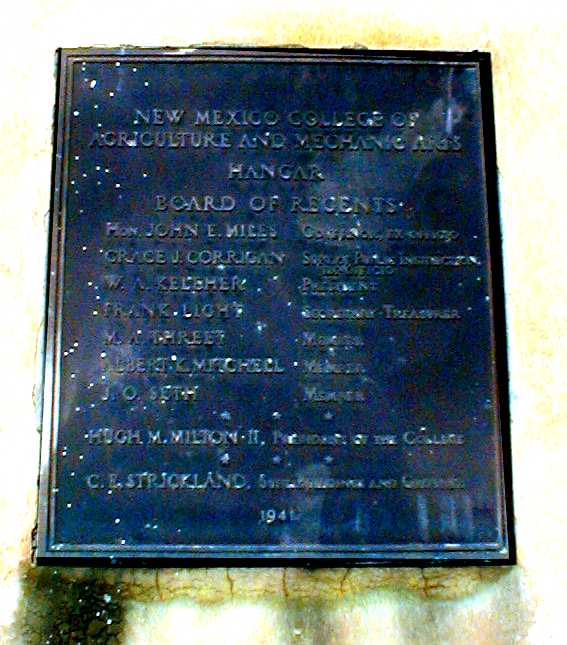 NEW MEXICO COLLEGE OF
AGRICULTURE AND MECHANIC ARTS
HANGAR
BOARD OF REGENTS
HON. JOHN E. MILES GOVERNOR, EX-OFFICIO
GRACE J. CORRIGAN SUPT. OF PUBLIC INSTRUCTION
EX-OFFICIO
W. A. KELEHER PRESIDENT
FRANK LIGHT SECRETARY-TREASURER
M. A. THREET MEMBER
ALBERT K. MITCHELL MEMBER
J. O. SETH MEMBER
HUGH M. MILTON II, PRESIDENT OF THE COLLEGE
C. E. STRICKLAND, AND
1941